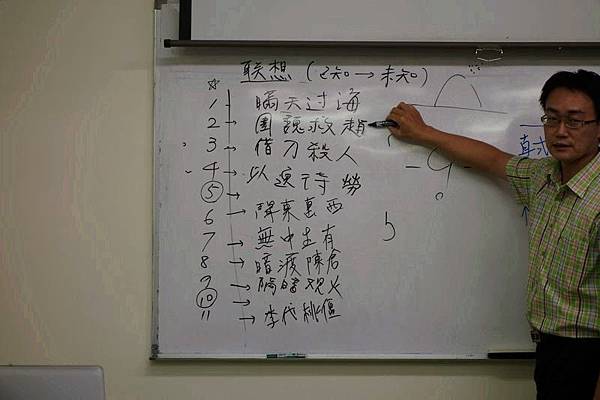 联想 (已知→未知)
☆
1 → 瞞天过海
2 → 围魏救趙
3 → 借刀殺人
4 → 以逸待勞
5 →
6 → 聲東擊西
7 → 無中生有
8 → 暗渡陳倉
9 → 隔岸观火
10 →
11 → 李代桃僵
直式